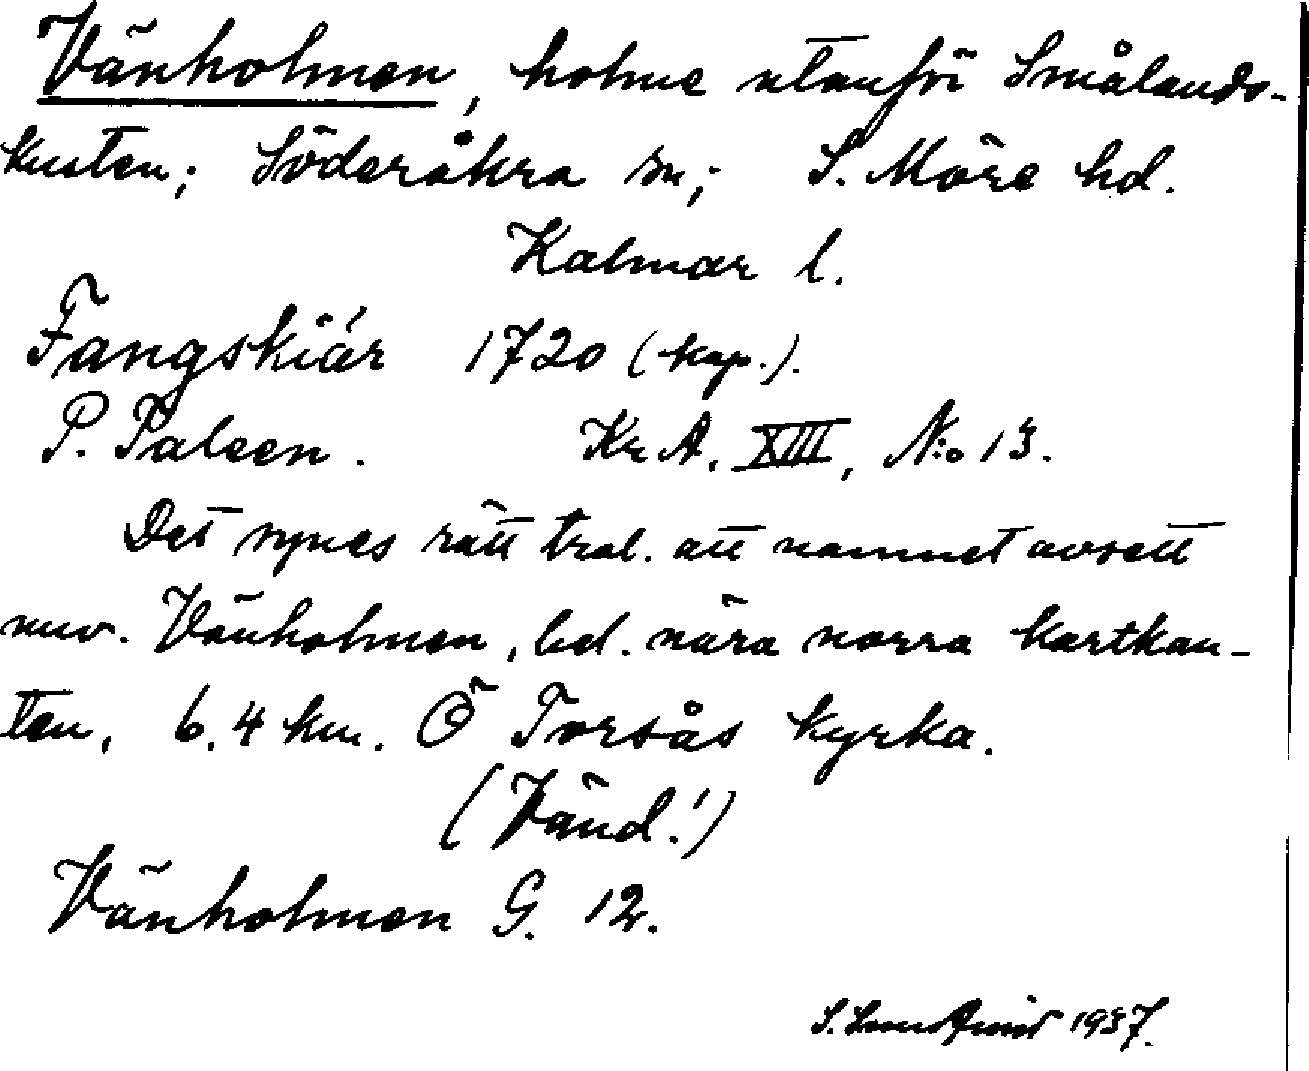 Vänholmen, holme utanför Smålands-
kusten; Söderåkra sn; S. Möre hd.
Kalmar l.
Fangskiär 1720 (kop.).
P. Paleen. Kr A. XIII, N:o 13.
Det synes rätt trol. att namnet avsett
nuv. Vänholmen, bel. nära norra kartkan-
ten, 6.4 km. Ö Torsås kyrka.
(Vänd!)
Vänholmen G. 12.
S. 1937.